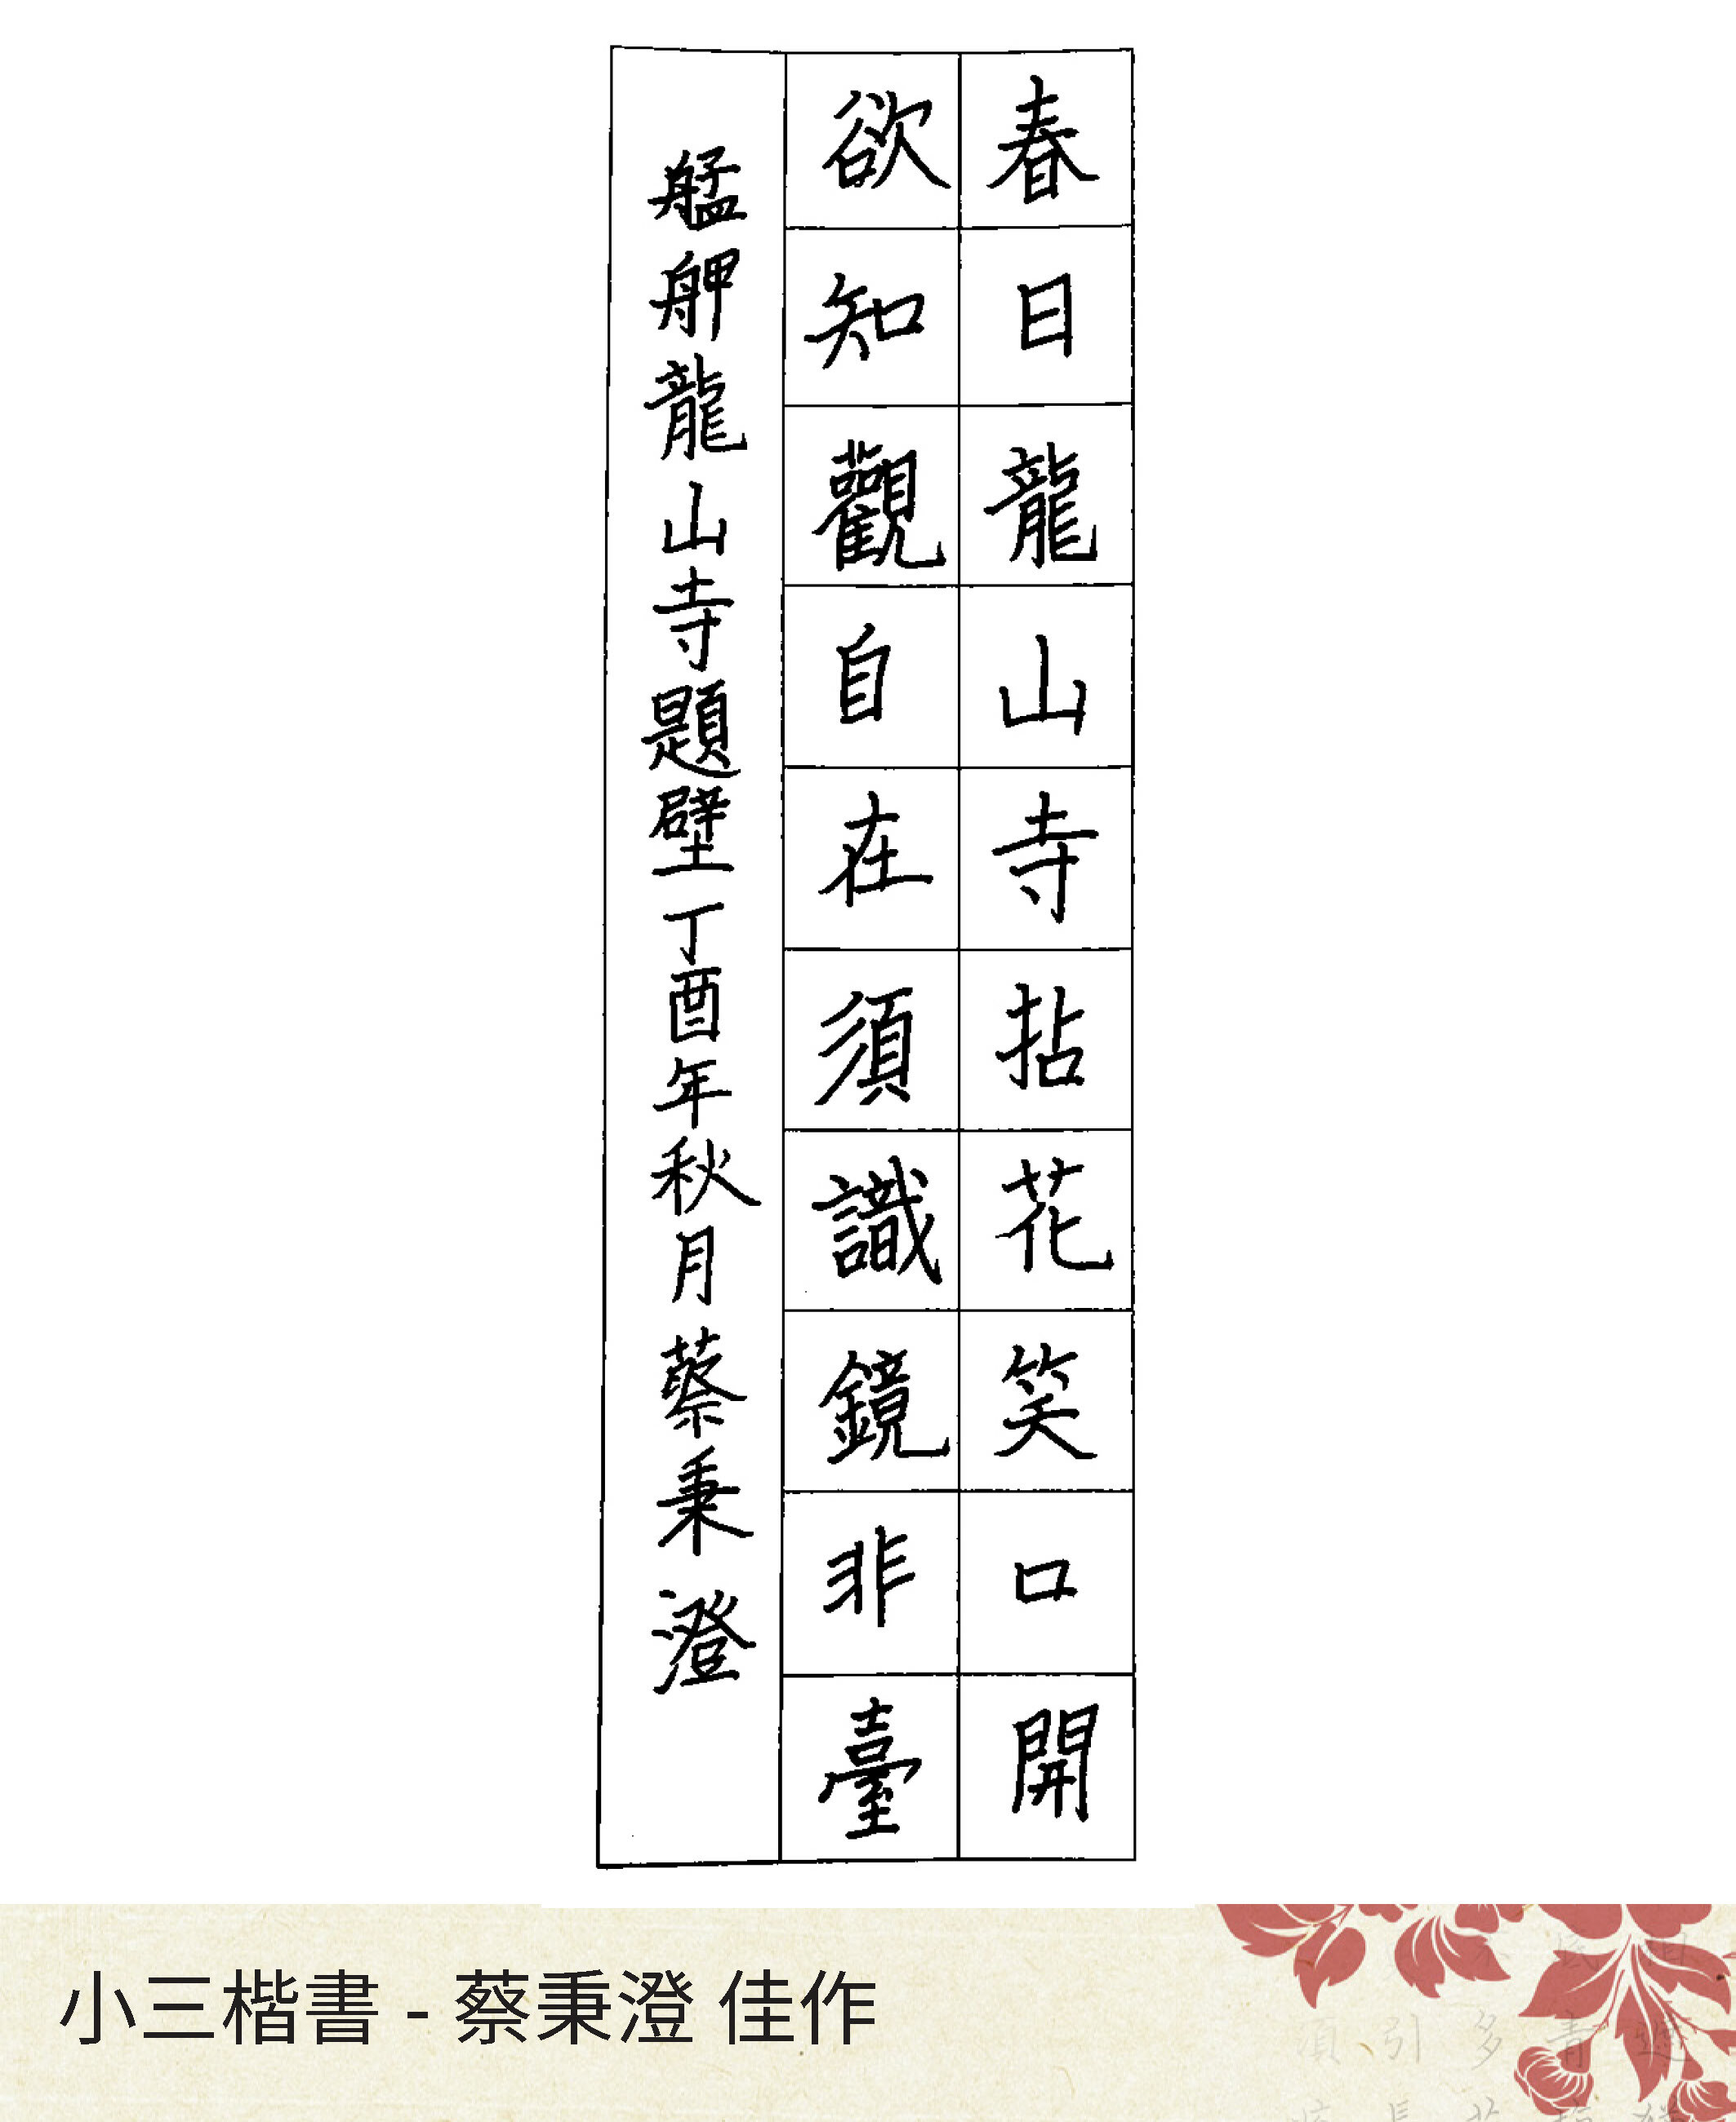 春日龍山寺拈花笑口開
欲知觀自在須識鏡非臺
艋舺龍山寺題壁丁酉年秋月蔡秉澄
小三楷書 - 蔡秉澄 佳作